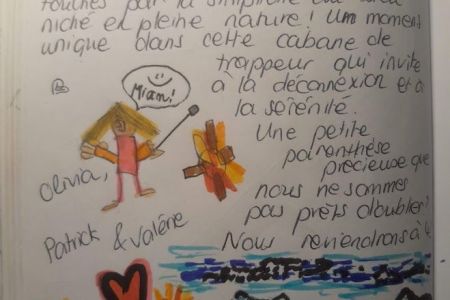 touchés par la simplicité
niché en pleine nature! Un moment
unique dans cette cabane de
trappeur qui invite
à la déconnexion et à
la sérénité.
Miam!
Une petite
parenthèse
précieuse que
nous ne sommes
pas prêts d'oublier!
Nous reviendrons à 4
Olivia,
Patrick & Valérie